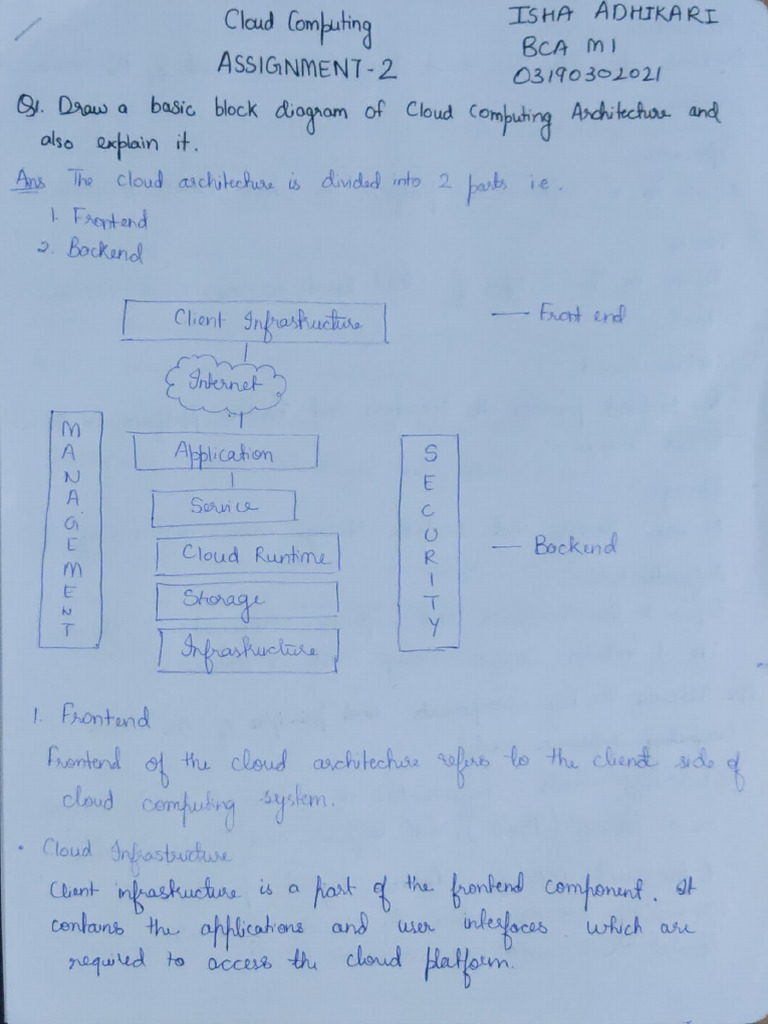 Cloud Computing
ASSIGNMENT-2
ISHA ADHIKARI
BCA M1
03190302021
Q1. Draw a basic block diagram of Cloud Computing Architecture and
also explain it.
Ans The cloud architecture is divided into 2 parts ie.
1. Frontend
2. Backend
Client Infrastructure
— Front end
Internet
MANAGEMENT
Application
Service
Cloud Runtime
Storage
Infrastructure
SECURITY
— Backend
1. Frontend
Frontend of the cloud architecture refers to the client side of
cloud computing system.
• Cloud Infrastructure
Client infrastructure is a part of the frontend component. It
contains the applications and user interfaces which are
required to access the cloud platform.